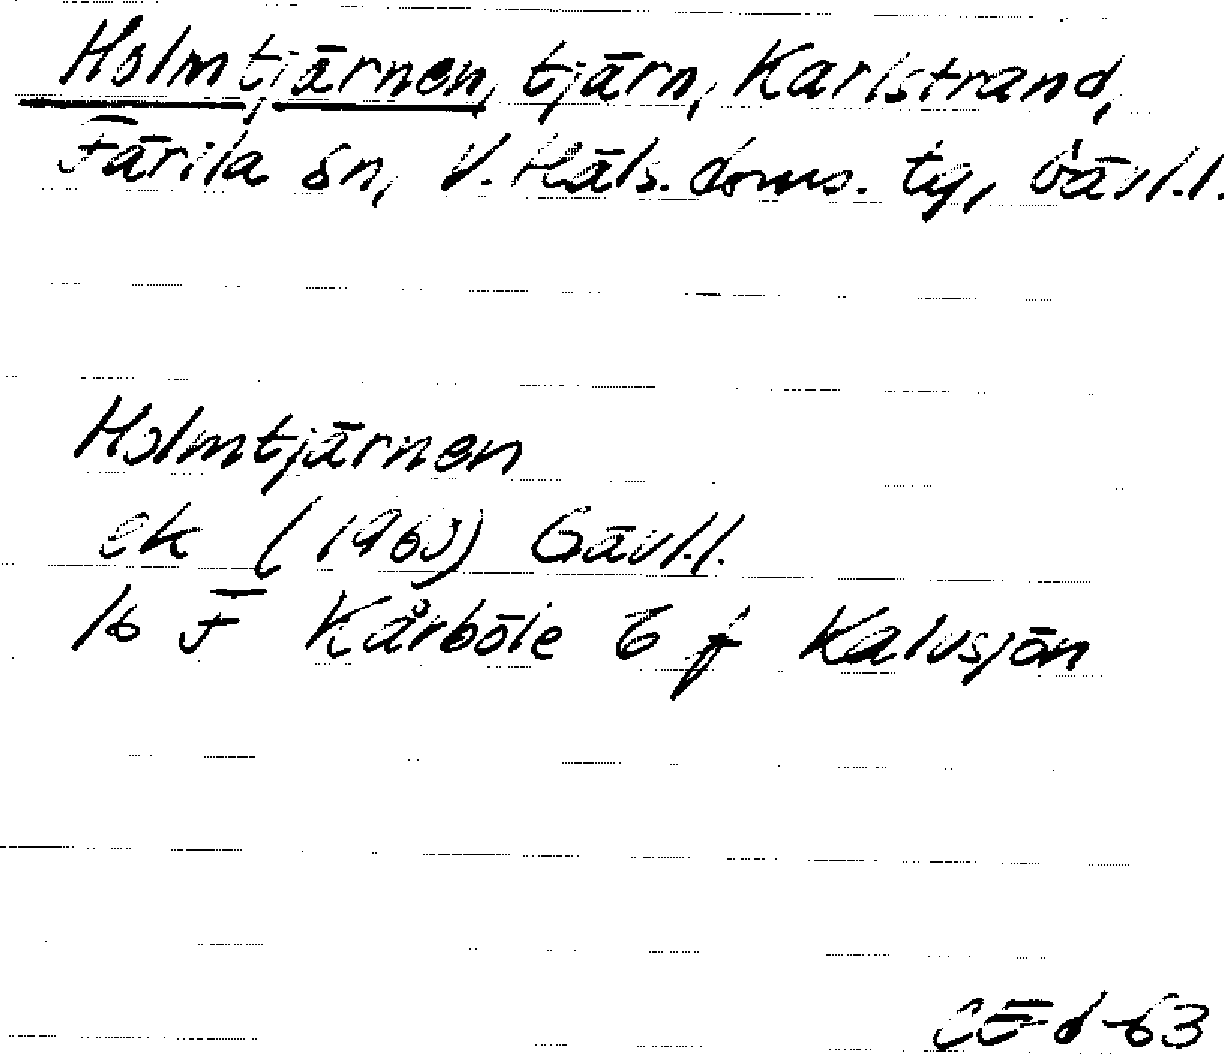 Holmtjärnen, tjärn, Karlstrand,
Färila sn, V. Häls. doms. tg, Gävl.l.
Holmtjärnen
ek (1960) Gävl.l.
16 F Kårböle 6 f Kalvsjön
63